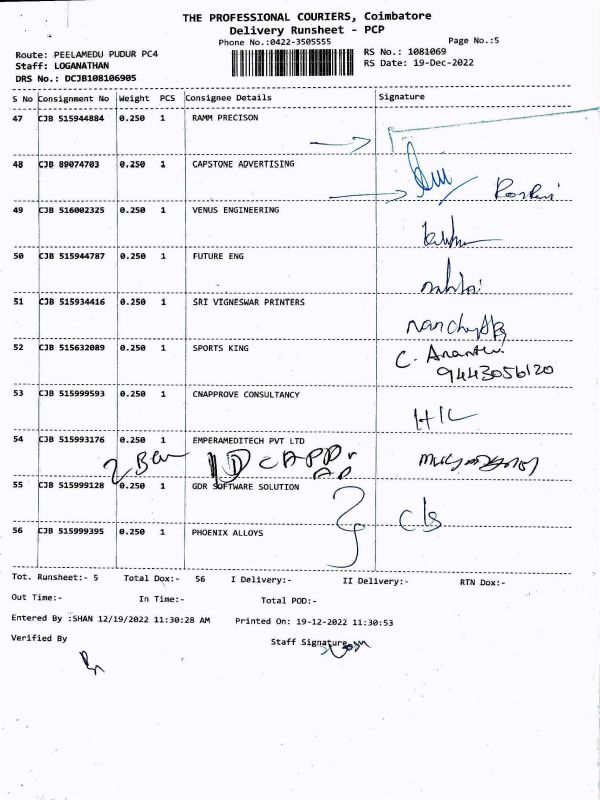 THE PROFESSIONAL COURIERS, Coimbatore
Delivery Runsheet - PCP
Phone No.:0422-3505555
Page No.:5
Route: PEELAMEDU PUDUR PC4
RS No.: 1081069
Staff: LOGANATHAN
RS Date: 19-Dec-2022
DRS No.: DCJB108106905
S No Consignment No Weight PCS Consignee Details Signature
47 CJB 515944884 0.250 1 RAMM PRECISON
48 CJB 89074703 0.250 1 CAPSTONE ADVERTISING
49 CJB 516002325 0.250 1 VENUS ENGINEERING
50 CJB 515944787 0.250 1 FUTURE ENG
51 CJB 515934416 0.250 1 SRI VIGNESWAR PRINTERS
52 CJB 515632089 0.250 1 SPORTS KING
9443056120
53 CJB 515999593 0.250 1 CNAPPROVE CONSULTANCY
54 CJB 515993176 0.250 1 EMPERAMEDITECH PVT LTD
55 CJB 515999128 0.250 1 GDR SOFTWARE SOLUTION
56 CJB 515999395 0.250 1 PHOENIX ALLOYS
Tot. Runsheet:- 5 Total Dox:- 56 I Delivery:- II Delivery:- RTN Dox:-
Out Time:- In Time:- Total POD:-
Entered By :SHAN 12/19/2022 11:30:28 AM Printed On: 19-12-2022 11:30:53
Verified By Staff Signature